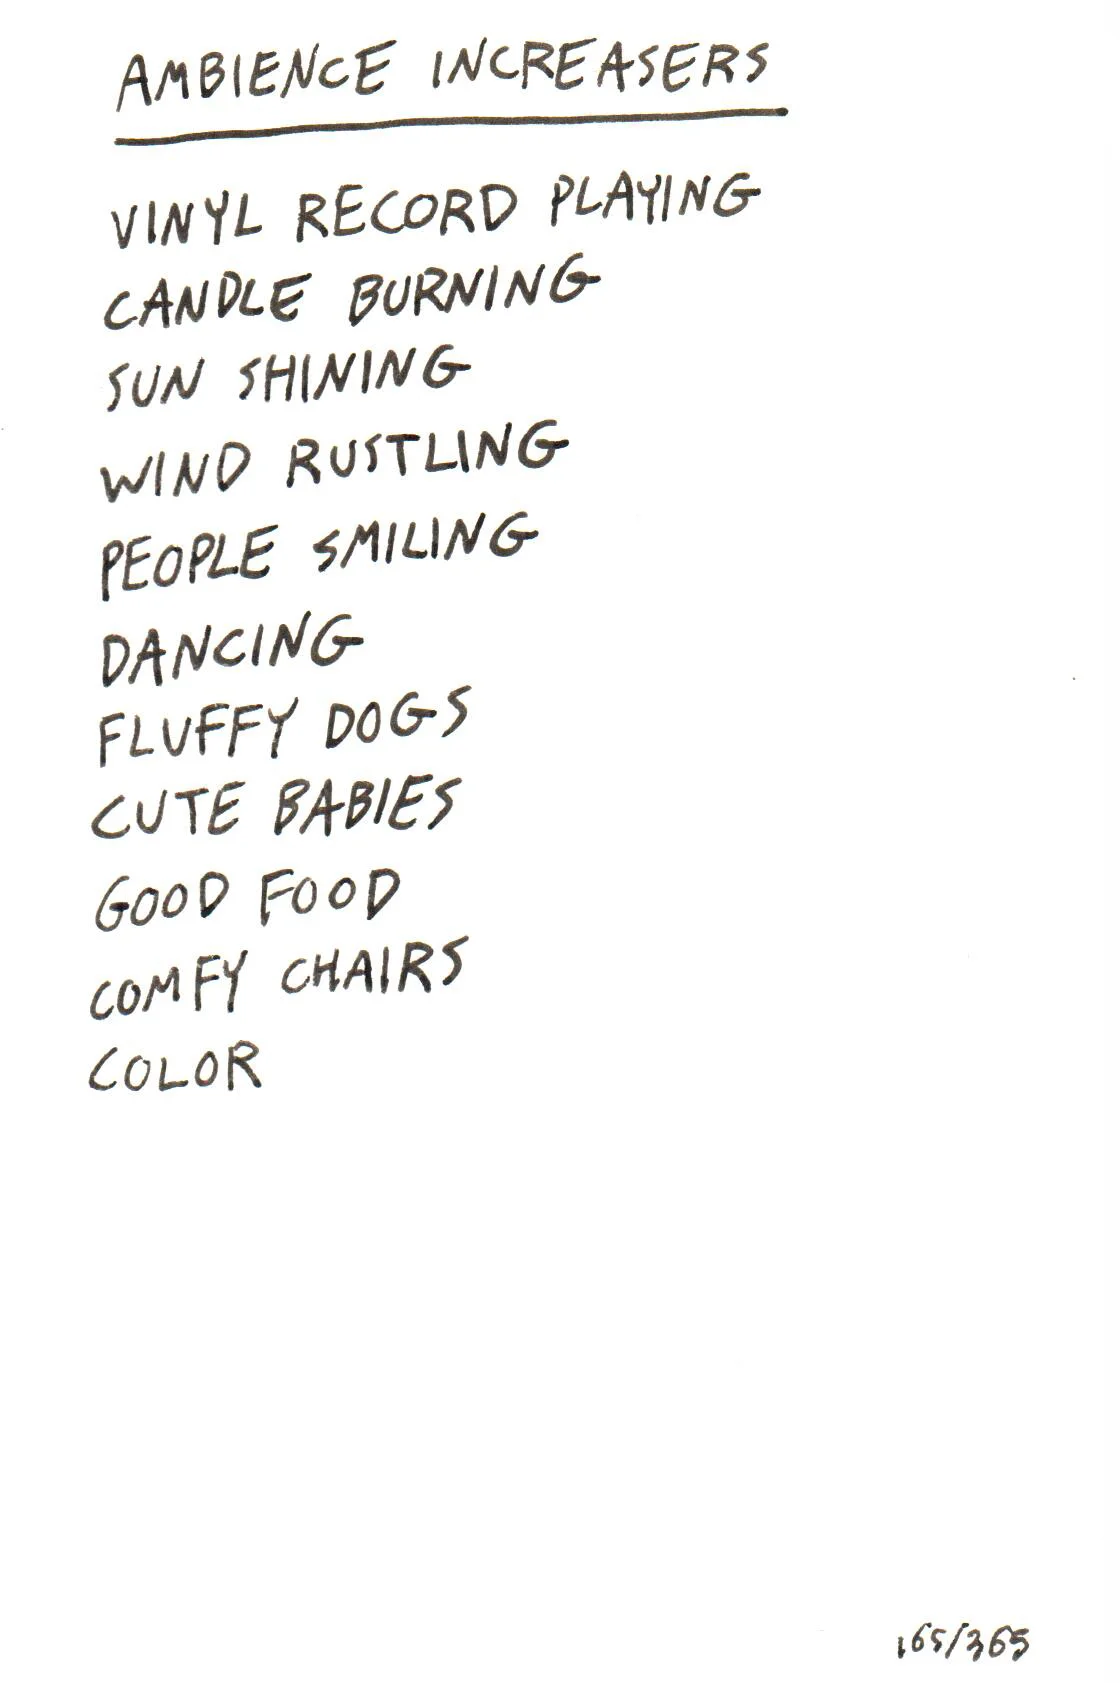 AMBIENCE INCREASERS
VINYL RECORD PLAYING
CANDLE BURNING
SUN SHINING
WIND RUSTLING
PEOPLE SMILING
DANCING
FLUFFY DOGS
CUTE BABIES
GOOD FOOD
COMFY CHAIRS
COLOR
165/365